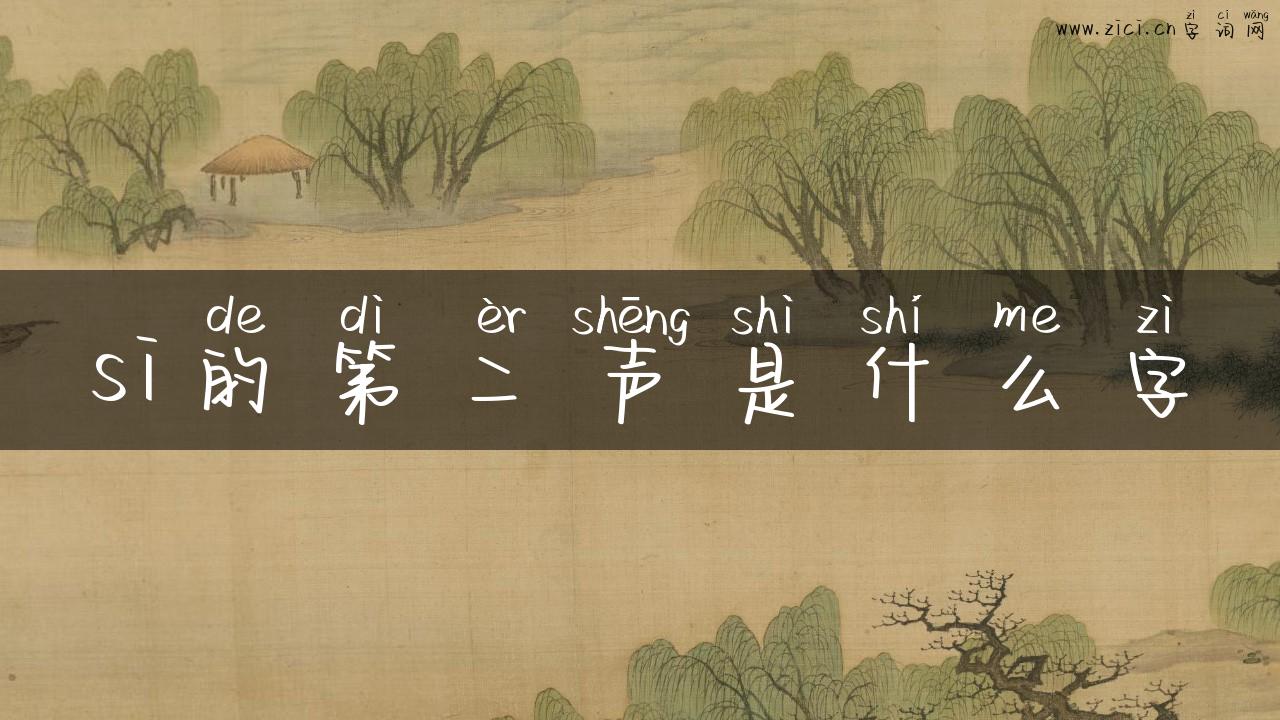 zì cí wǎng
www.zici.cn 字词网
de dì èr shēng shì shí me zì
sī的第二声是什么字